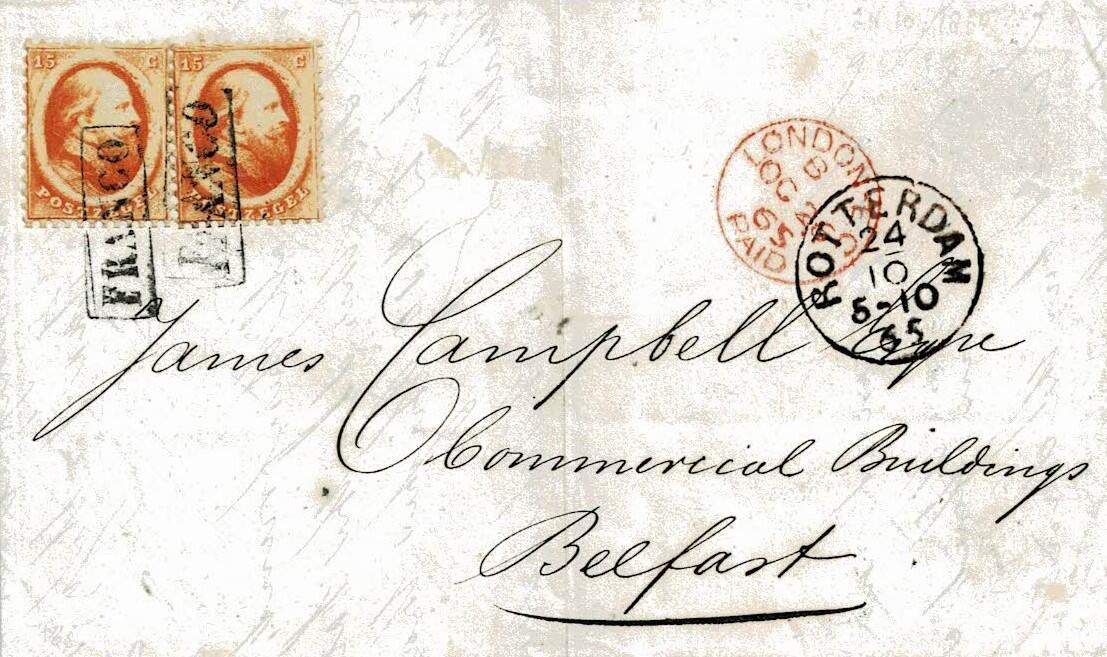 15 C 15 C
POSTZEGEL POSTZEGEL
FRANCO
FRANCO
LONDON
OC
65
PAID
ROTTERDAM
24
10
5-10
65
James Campbell Esqre
Commercial Buildings
Belfast